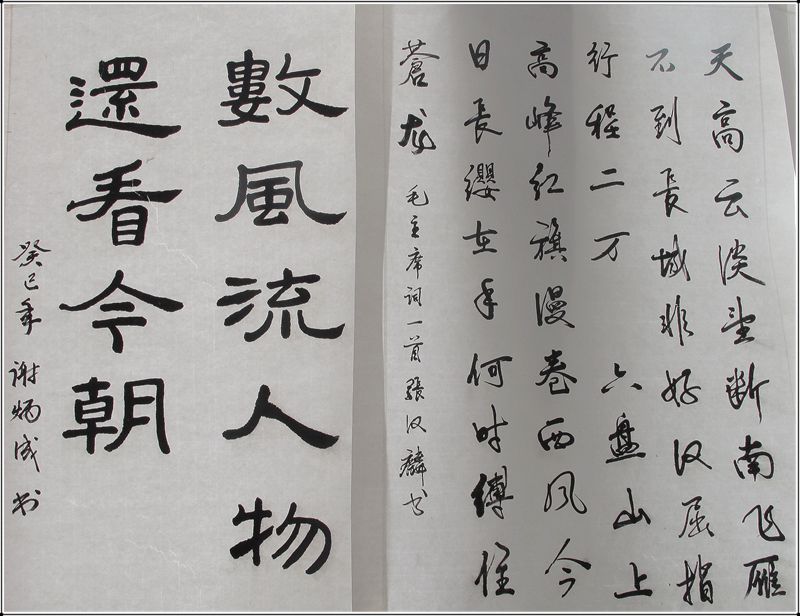 天高云淡望断南飞雁
不到长城非好汉屈指
行程二万 六盘山上
高峰红旗漫卷西风今
日长缨在手何时缚住
苍龙
毛主席词一首 张汉麟书
數風流人物
還看今朝
癸巳年 谢炳成书